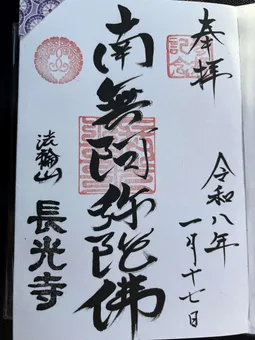 奉拝
令和八年
一月十七日
南無阿弥陀佛
法輪山
長光寺